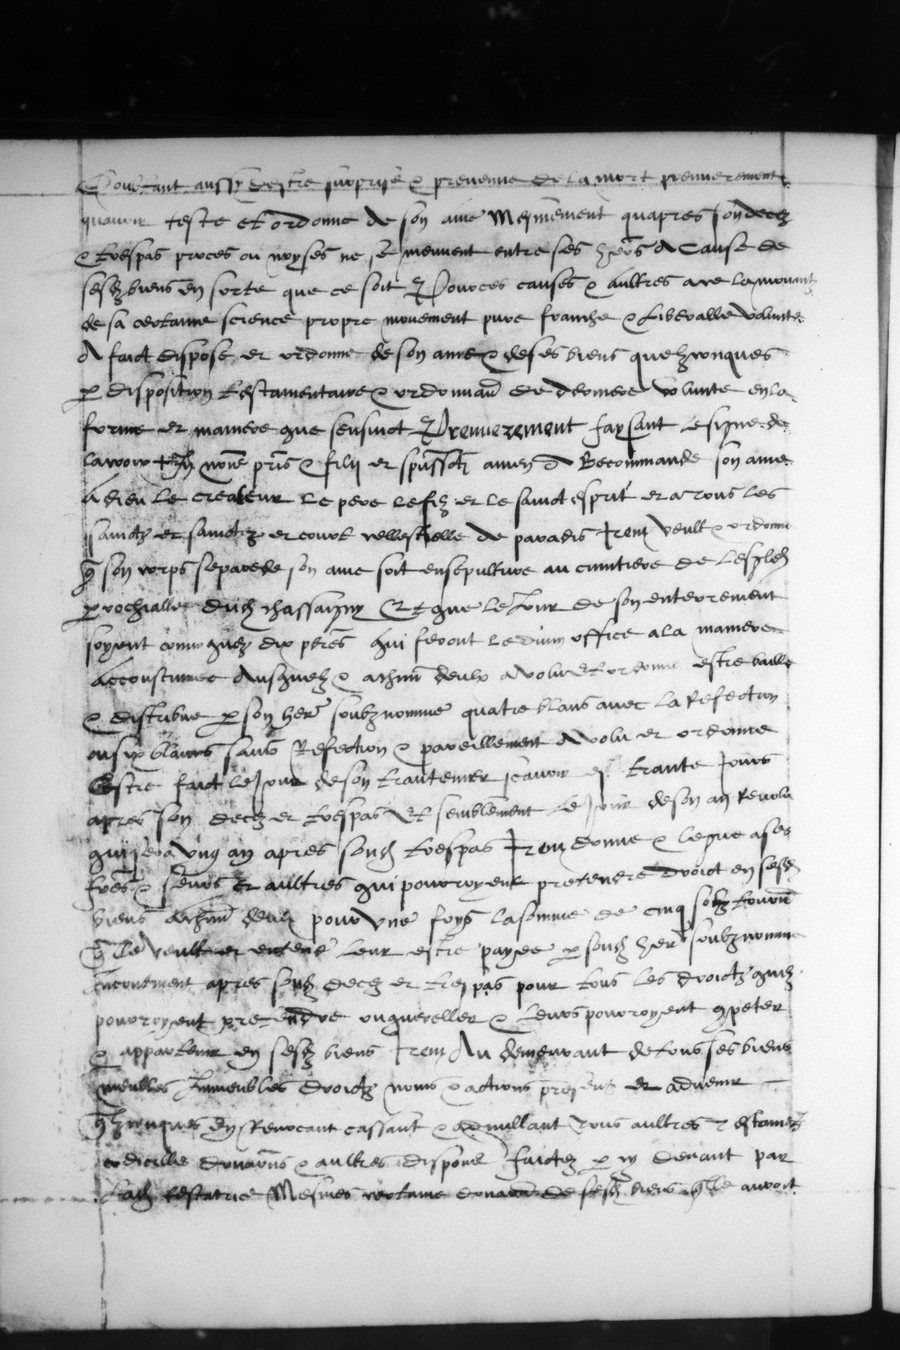 Doubtant aussy destre surprise & prevenue de la mort premierement
quavoir teste et ordonne de son ame Mesmement quapres son decez
& trespas proces ou noyses ne se meuvent entre ses hers a cause de
sesd biens en sorte que ce soit Pour ces causes & aultres ace la mouvant
de sa certaine science propre mouvement pure franche & liberalle volunte
A faict dispose et ordonne de son ame & de ses biens quelzconques
p disposition testamentaire & ordonnan de derniere volunte en la
forme et maniere que sensuict Premierement faysant le signe de
la croix In noie pris & filii et spussctj amen A Recommande son ame
a dieu le createur le pere le filz et le sainct esprit et a tous les
sainctz et sainctes et court cellestielle de paradis Item veult & ordonne
q son corps separe de son ame soit ensepulture au cimitiere de lesglez
parochialle dud chassaigny Et que le Jour de son enterrement
soyent convoquez dix pbres qui feront le divin office a la maniere
accoustumee Ausquelz & achun deulx a volu et ordonne estre baille
& distribue p son her soubznomme quatre blans avec la Refection
ou six blans sans Refection & pareillement A volu et ordonne
Estre faict le Jour de son trantenier scavoir trante Jours
apres son decez et trespas Et semblement le Jour de son an Revolu
qui sera ung an apres sond trespas Item donne & legue a ses
freres & seurs et aultres qui pourroyent pretendre droict en sesd
biens achun deulx pour une foys la somme de cinq solz tournois
qlle veult et entend leur estre payee p sond her soubznomme
Incontinent apres sond decez et trespas pour tous les droictz quilz
pourroyent pretendre ou quereller & leurs pourroyent competer
& appartenir en sesd biens Item Au demeurant de tous ses biens
meubles Immeubles droictz noms & actions presens et advenir
qlzconques En Revocant cassant & adnullant tous aultres testamez
codicilles donaons & aultres dispons faictez p cy devant par
lad testatrice Mesmes certaine donaon de sesd biens qlle avoit